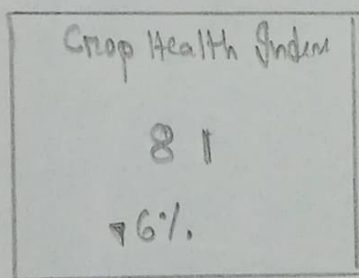 Crop Health Index
81
▼6%